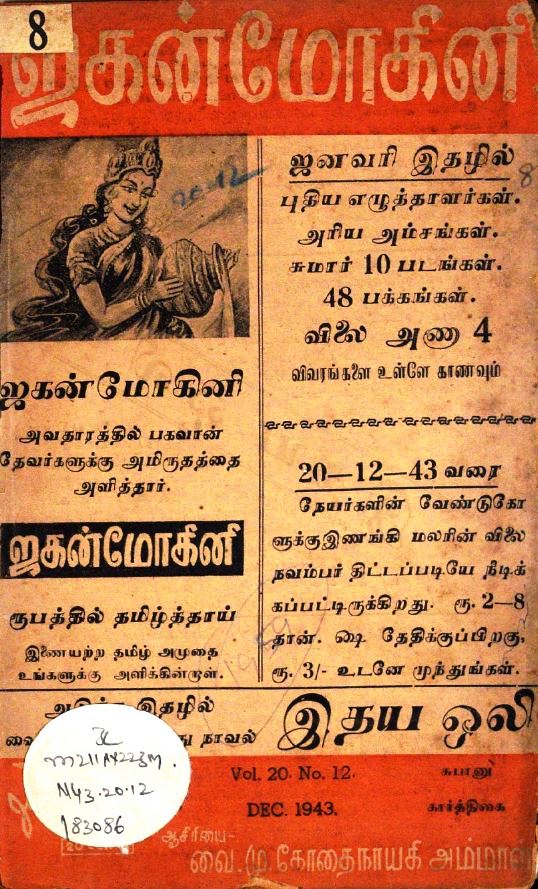 8
ஜகன்மோகினி
20-12
ஜகன்மோகினி
அவதாரத்தில் பகவான்
தேவர்களுக்கு அமிருதத்தை
அளித்தார்.
ஜகன்மோகினி
ரூபத்தில் தமிழ்த்தாய்
இணையற்ற தமிழ் அமுதை
உங்களுக்கு அளிக்கின்றாள்.
ஜனவரி இதழில்
8
புதிய எழுத்தாளர்கள்.
அரிய அம்சங்கள்.
சுமார் 10 படங்கள்.
48 பக்கங்கள்.
விலை அணா 4
விவரங்களை உள்ளே காணவும்
20—12—43 வரை
நேயர்களின் வேண்டுகோ
ளுக்குஇணங்கி மலரின் விலை
நவம்பர் திட்டப்படியே நீடிக்
கப்பட்டிருக்கிறது. ரூ. 2—8
தான். ஷை தேதிக்குப்பிறகு,
ரூ. 3/- உடனே முந்துங்கள்.
இதழில்
நாவல்
இதய ஒலி
N43.20.12
183086
Vol. 20. No. 12.
DEC. 1943.
சுபானு
கார்த்திகை
ஆசிரியை-
வை.மு.கோதைநாயகி அம்மாள்